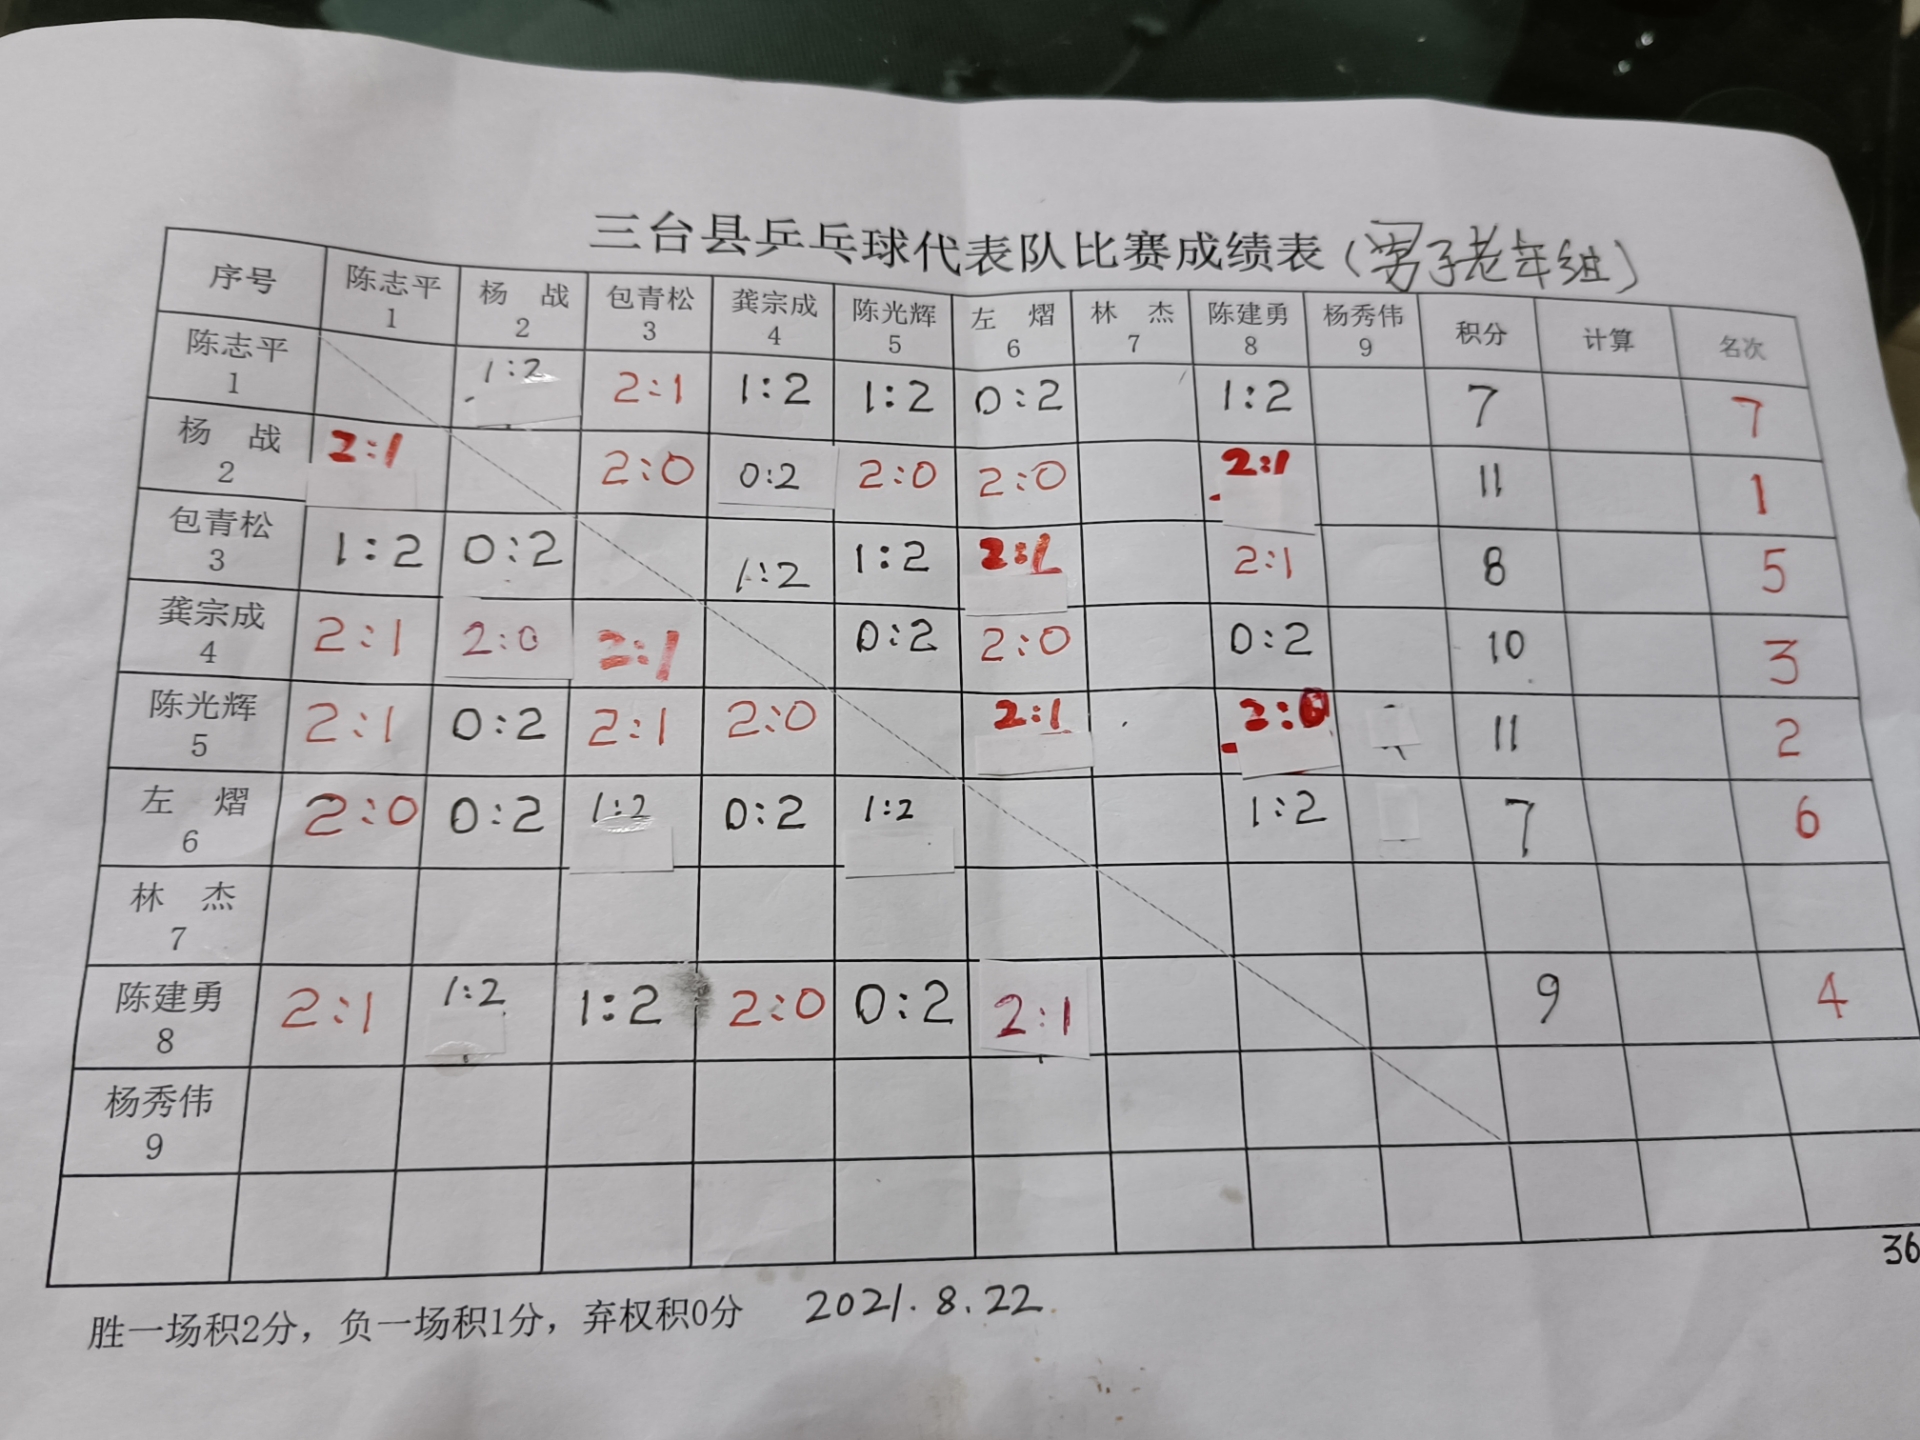 三台县乒乓球代表队比赛成绩表（男子老年组）
序号 陈志平 1 杨 战 2 包青松 3 龚宗成 4 陈光辉 5 左 熠 6 林 杰 7 陈建勇 8 杨秀伟 9 积分 计算 名次
陈志平 1 1:2 2:1 1:2 1:2 0:2 1:2 7 7
杨 战 2 2:1 2:0 0:2 2:0 2:0 2:1 11 1
包青松 3 1:2 0:2 1:2 1:2 2:1 2:1 8 5
龚宗成 4 2:1 2:0 2:1 0:2 2:0 0:2 10 3
陈光辉 5 2:1 0:2 2:1 2:0 2:1 2:0 11 2
左 熠 6 2:0 0:2 1:2 0:2 1:2 1:2 7 6
林 杰 7
陈建勇 8 2:1 1:2 1:2 2:0 0:2 2:1 9 4
杨秀伟 9
36
胜一场积2分，负一场积1分，弃权积0分 2021.8.22